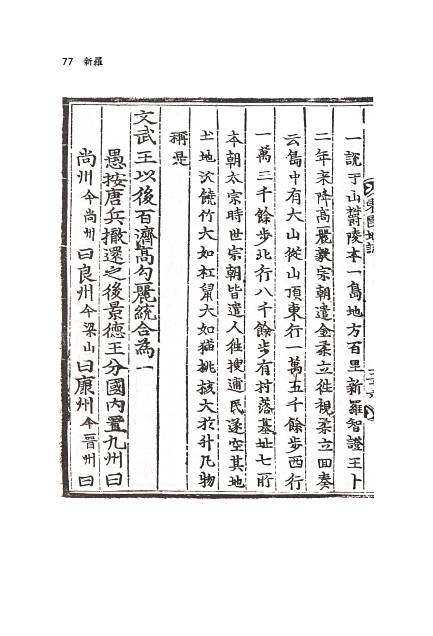 77 新羅
東國地誌
一說于山欝陵本一島地方百里新羅智證王十
二年来降高麗毅宗朝遣金柔立徃視柔立回奏
云島中有大山從山頂東行一萬五千餘步西行
一萬三千餘步北行八千餘步有村落墓址七所
本朝太宗時世宗朝皆遣人徃搜逋民遂空其地
土地沃饒竹大如杠鼠大如猫桃核大於升凡物
稱是
文武王以後百濟高勾麗統合為一
愚按唐兵撤還之後景德王分國內置九州曰
尚州今尚州曰良州今梁山曰康州今晋州曰